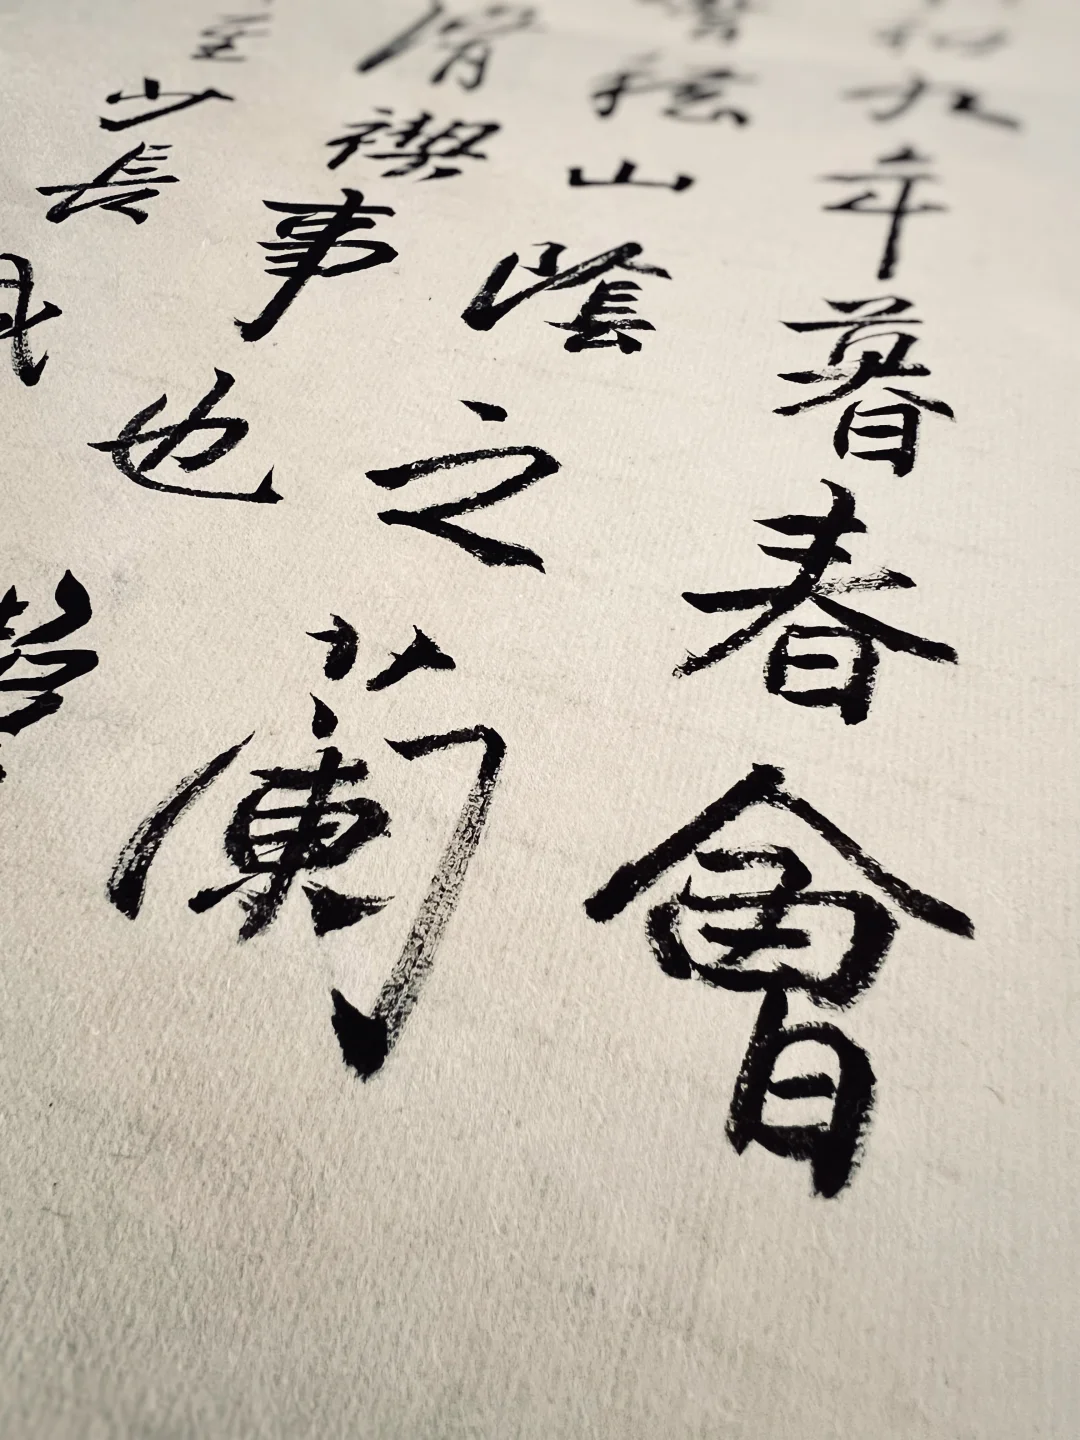 和九年暮春會
稽山陰之蘭
脩禊事也
至少長咸